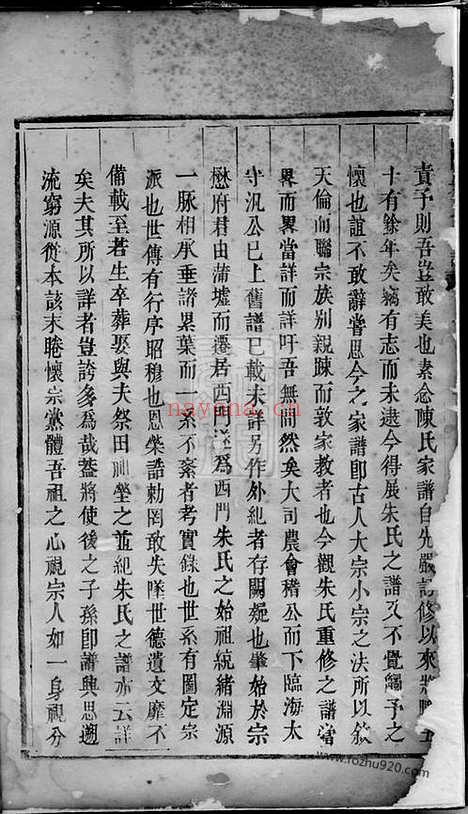 責予則吾豈敢美也素念陳氏家譜自先嚴修以來將
十有餘年矣竊有志而未逮今得展朱氏之譜又不覺觸予之
懷也誼不敢辭嘗思今之家譜即古人大宗小宗之法所以敘
天倫而聯宗族别親踈而敦家教者也今觀朱氏重修之譜當
畧而畧當詳而詳吁吾無間然矣大司農會稽公而下臨海太
守汎公已上舊譜已載未詳另作外紀者存闕疑也肇始於宗
懋府君由蒲墟而遷居西門爲西門朱氏之始祖統緒淵源
一脈相承垂諸累葉而一系不紊者考實錄也世系有圖定宗
派也世傳有行序昭穆也恩榮誥勅罔敢失墜世德遺文靡不
備載至若生卒葬娶與夫祭田祖塋之並紀朱氏之譜亦云詳
矣夫其所以詳者豈誇多爲哉葢將使後之子孫即譜興思遡
流窮源從本該末睠懷宗黨體吾祖之心視宗人如一身視分
nayona.cn
www.fozhu920.com